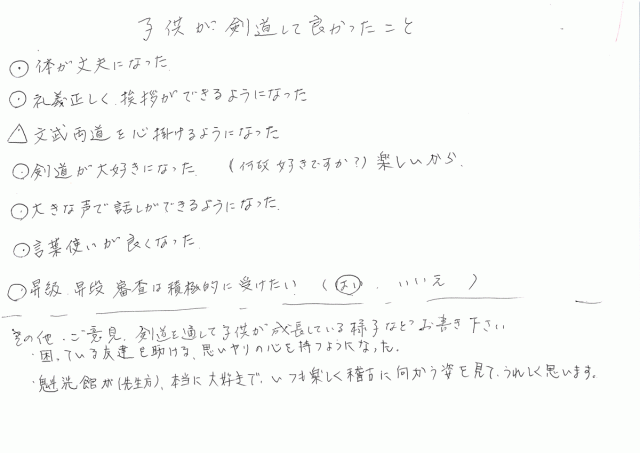 子供が剣道して良かったこと
⊙ 体が丈夫になった
⊙ 礼義正しく、挨拶ができるようになった
△ 文武両道を心掛けるようになった
○ 剣道が大好きになった (何故好きですか?) 楽しいから.
○ 大きな声で話しができるようになった
○ 言葉使いが良くなった
○ 昇級、昇段審査は積極的に受けたい (はい . いいえ )
その他・ご意見、剣道を通して子供が成長している様子などお書き下さい
・困っている友達を助ける、思いやりの心を持つようになった.
・魁洗館が(先生方)、本当に大好きで、いつも楽しく稽古に向かう姿を見て、うれしく思います。